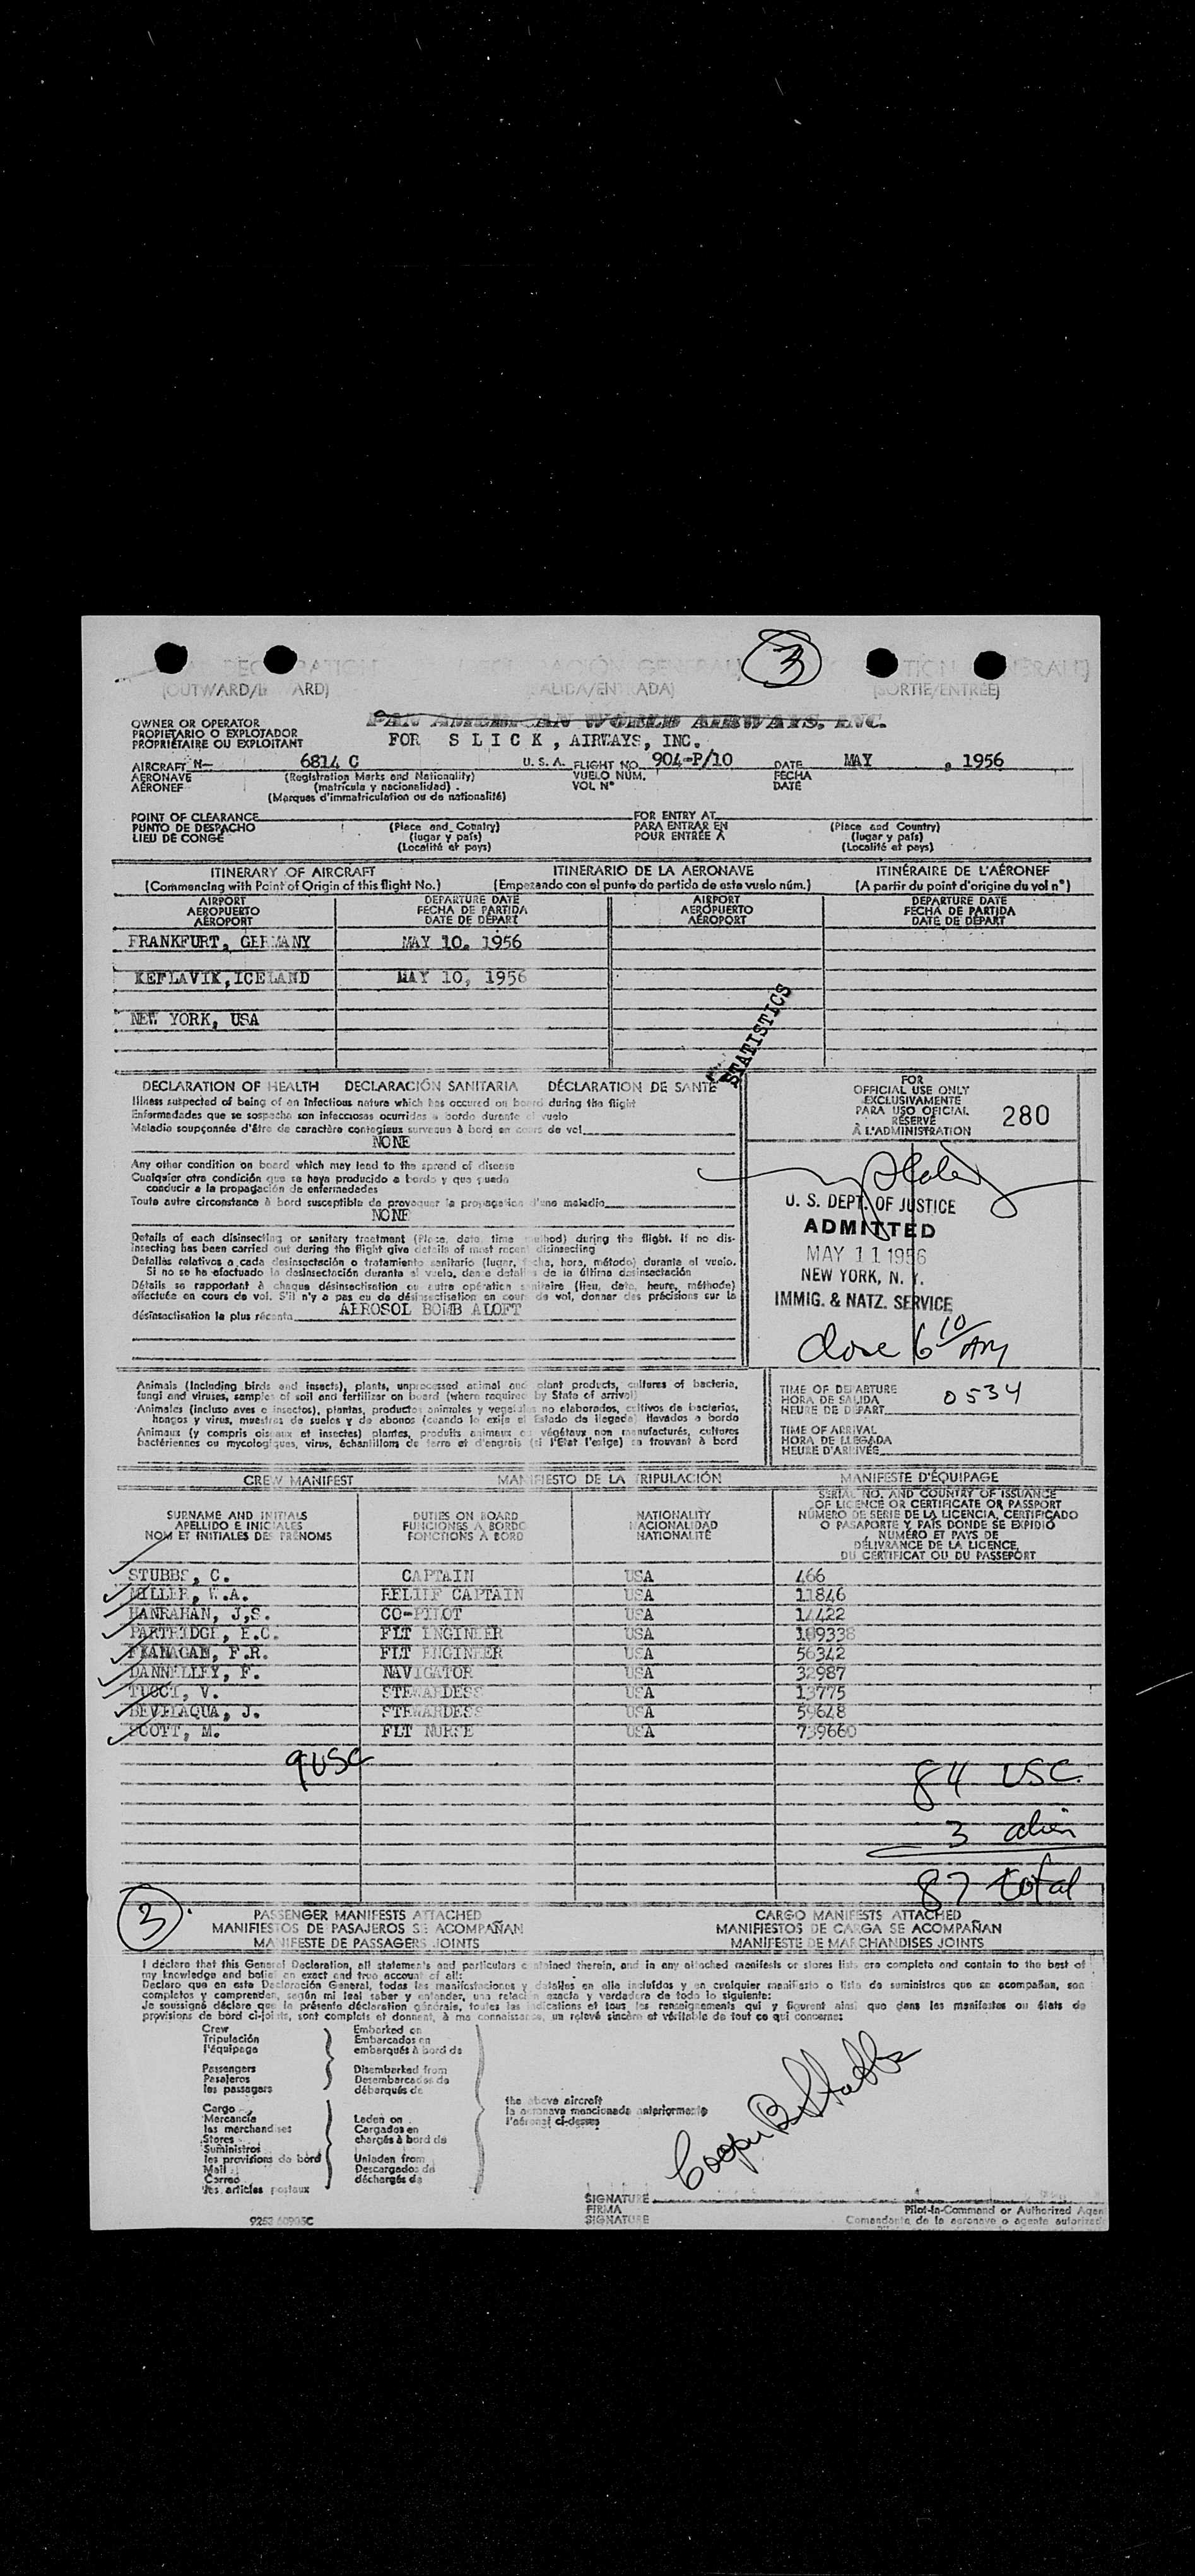 (OUTWARD/INWARD) (SALIDA/ENTRADA) (SORTIE/ENTRÉE)
3
PAN AMERICAN WORLD AIRWAYS, INC.
OWNER OR OPERATOR
PROPIETARIO O EXPLOTADOR
PROPRIÉTAIRE OU EXPLOITANT
FOR S L I C K , AIRWAYS, INC.
AIRCRAFT N- 6814 C U. S. A. FLIGHT NO. 904-P/10 DATE MAY , 1956
AÉRONAVE (Registration Marks and Nationality) VUELO NÚM. FECHA
AÉRONEF (matrícula y nacionalidad) VOL N° DATE
(Marques d'immatriculation ou de nationalité)
POINT OF CLEARANCE FOR ENTRY AT
PUNTO DE DESPACHO (Place and Country) PARA ENTRAR EN (Place and Country)
LIEU DE CONGÉ (lugar y país) POUR ENTRÉE À (lugar y país)
(Localité et pays) (Localité et pays)
ITINERARY OF AIRCRAFT ITINERARIO DE LA AERONAVE ITINÉRAIRE DE L'AÉRONEF
(Commencing with Point of Origin of this flight No.) (Empezando con el punto de partida de este vuelo núm.) (A partir du point d'origine du vol n°)
AIRPORT DEPARTURE DATE AIRPORT DEPARTURE DATE
AEROPUERTO FECHA DE PARTIDA AEROPUERTO FECHA DE PARTIDA
AÉROPORT DATE DE DÉPART AÉROPORT DATE DE DÉPART
FRANKFURT, GERMANY MAY 10. 1956
KEFLAVIK, ICELAND MAY 10, 1956
NEW YORK, USA
STATISTICS
DECLARATION OF HEALTH DECLARACIÓN SANITARIA DÉCLARATION DE SANTÉ
Illness suspected of being of an infectious nature which has occured on board during the flight
Enfermedades que se sospecha son infecciosas ocurridas a bordo durante el vuelo
Maladie soupçonnée d'être de caractère contagieux survenue à bord en cours de vol
NONE
Any other condition on board which may lead to the spread of disease
Cualquier otra condición que se haya producido a bordo y que pueda
conducir a la propagación de enfermedades
Toute autre circonstance à bord susceptible de provoquer la propagation d'une maladie
NONE
Details of each disinsecting or sanitary treatment (Place, date, time method) during the flight. If no dis-
insecting has been carried out during the flight give details of most recent disinsecting
Detalles relativos a cada desinsectación o tratamiento sanitario (lugar, fecha, hora, método) durante el vuelo.
Si no se ha efectuado la desinsectación durante el vuelo, den e detalles de la última desinsectación
Détails se rapportant à chaque désinsectisation ou autre opération sanitaire (lieu, date, heure, méthode)
effectuée en cours de vol. S'il n'y a pas eu de désinsectisation en cours de vol, donner des précisions sur la
désinsectisation la plus récente AEROSOL BOMB ALOFT
FOR
OFFICIAL USE ONLY
EXCLUSIVAMENTE
PARA USO OFICIAL
RÉSERVÉ
À L'ADMINISTRATION
280
U. S. DEPT. OF JUSTICE
ADMITTED
MAY 11 1956
NEW YORK, N. Y.
IMMIG. & NATZ. SERVICE
Close 6 10/AM
Animals (Including birds and insects), plants, unprocessed animal and plant products, cultures of bacteria,
fungi and viruses, samples of soil and fertilizer on board (where required by State of arrival)
Animales (incluso aves e insectos), plantas, productos animales y vegetales no elaborados, cultivos de bacterias,
hongos y virus, muestras de suelos y de abonos (cuando lo exija el Estado de llegada) llevados a bordo
Animaux (y compris oiseaux et insectes) plantes, produits animaux ou végétaux non manufacturés, cultures
bactériennes ou mycologiques, virus, échantillons de terre et d'engrais (si l'Etat l'exige) se trouvant à bord
TIME OF DEPARTURE
HORA DE SALIDA 0534
HEURE DE DÉPART
TIME OF ARRIVAL
HORA DE LLEGADA
HEURE D'ARRIVÉE
CREW MANIFEST MANIFIESTO DE LA TRIPULACIÓN MANIFESTE D'ÉQUIPAGE
SURNAME AND INITIALS
APELLIDO E INICIALES
NOM ET INITIALES DES PRÉNOMS
DUTIES ON BOARD
FUNCIONES A BORDO
FONCTIONS À BORD
NATIONALITY
NACIONALIDAD
NATIONALITÉ
SERIAL NO. AND COUNTRY OF ISSUANCE
OF LICENCE OR CERTIFICATE OR PASSPORT
NÚMERO DE SERIE DE LA LICENCIA, CERTIFICADO
O PASAPORTE Y PAÍS DONDE SE EXPIDIÓ
NUMÉRO ET PAYS DE
DÉLIVRANCE DE LA LICENCE,
DU CERTIFICAT OU DU PASSEPORT
STUBBS, C. CAPTAIN USA 466
MILLER, W.A. RELIEF CAPTAIN USA 11846
HANRAHAN, J,S. CO-PILOT USA 14422
PARTRIDGE, E.C. FLT ENGINEER USA 109338
FLANAGAN, F.R. FLT ENGINEER USA 56342
DANNELLEY, F. NAVIGATOR USA 32987
TUCCI, V. STEWARDESS USA 13775
BEVILAQUA, J. STEWARDESS USA 59648
SCOTT, M. FLT NURSE USA 739660
9 USC
84 USC
3 alien
87 total
3
PASSENGER MANIFESTS ATTACHED CARGO MANIFESTS ATTACHED
MANIFIESTOS DE PASAJEROS SE ACOMPAÑAN MANIFIESTOS DE CARGA SE ACOMPAÑAN
MANIFESTE DE PASSAGERS JOINTS MANIFESTE DE MARCHANDISES JOINTS
I declare that this General Declaration, all statements and particulars contained therein, and in any attached manifests or stores lists are complete and contain to the best of
my knowledge and belief an exact and true account of all:
Declaro que en esta Declaración General, todas las manifestaciones y detalles en ella incluídos y en cualquier manifiesto o lista de suministros que se acompañan, son
completos y comprenden, según mi leal saber y entender, una relación exacta y verdadera de todo lo siguiente:
Je soussigné déclare que la présente déclaration générale, toutes les indications et tous les renseignements qui y figurent ainsi que dans les manifestes ou états de
provisions de bord ci-joints, sont complets et donnent, à ma connaissance, un relevé sincère et véritable de tout ce qui concerne:
Crew
Tripulación
l'équipage
Passengers
Pasajeros
les passagers
Cargo
Mercancía
les marchandises
Stores
Suministros
les provisions de bord
Mail
Correo
les articles postaux
Embarked on
Embarcados en
embarqués à bord de
Disembarked from
Desembarcados de
débarqués de
Laden on
Cargados en
chargés à bord de
Unladen from
Descargados de
déchargés de
the above aircraft
la aeronave mencionada anteriormente
l'aéronef ci-dessus
Cooper B Stubbs
SIGNATURE
FIRMA
SIGNATURE
Pilot-In-Command or Authorized Agent
Comandante de la aeronave o agente autorizado